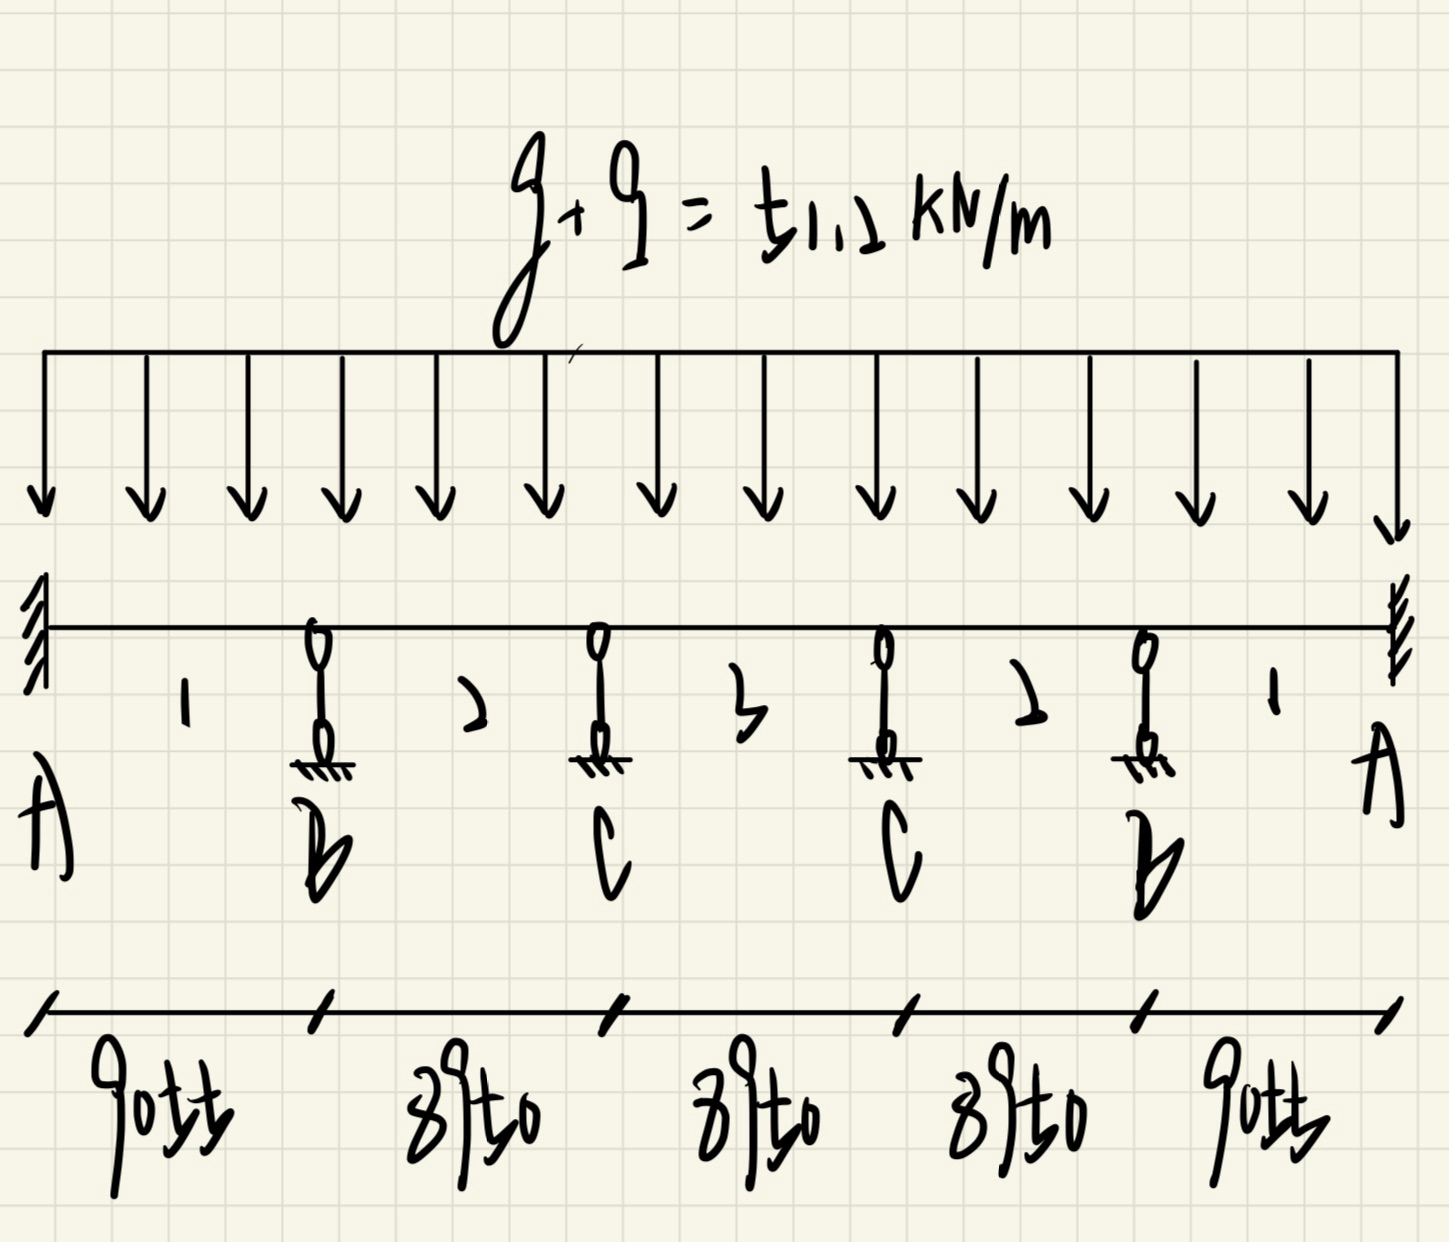 g+q = 51.2 kN/m
1 2 3 2 1
A B C C B A
9055 8950 8950 8950 9055